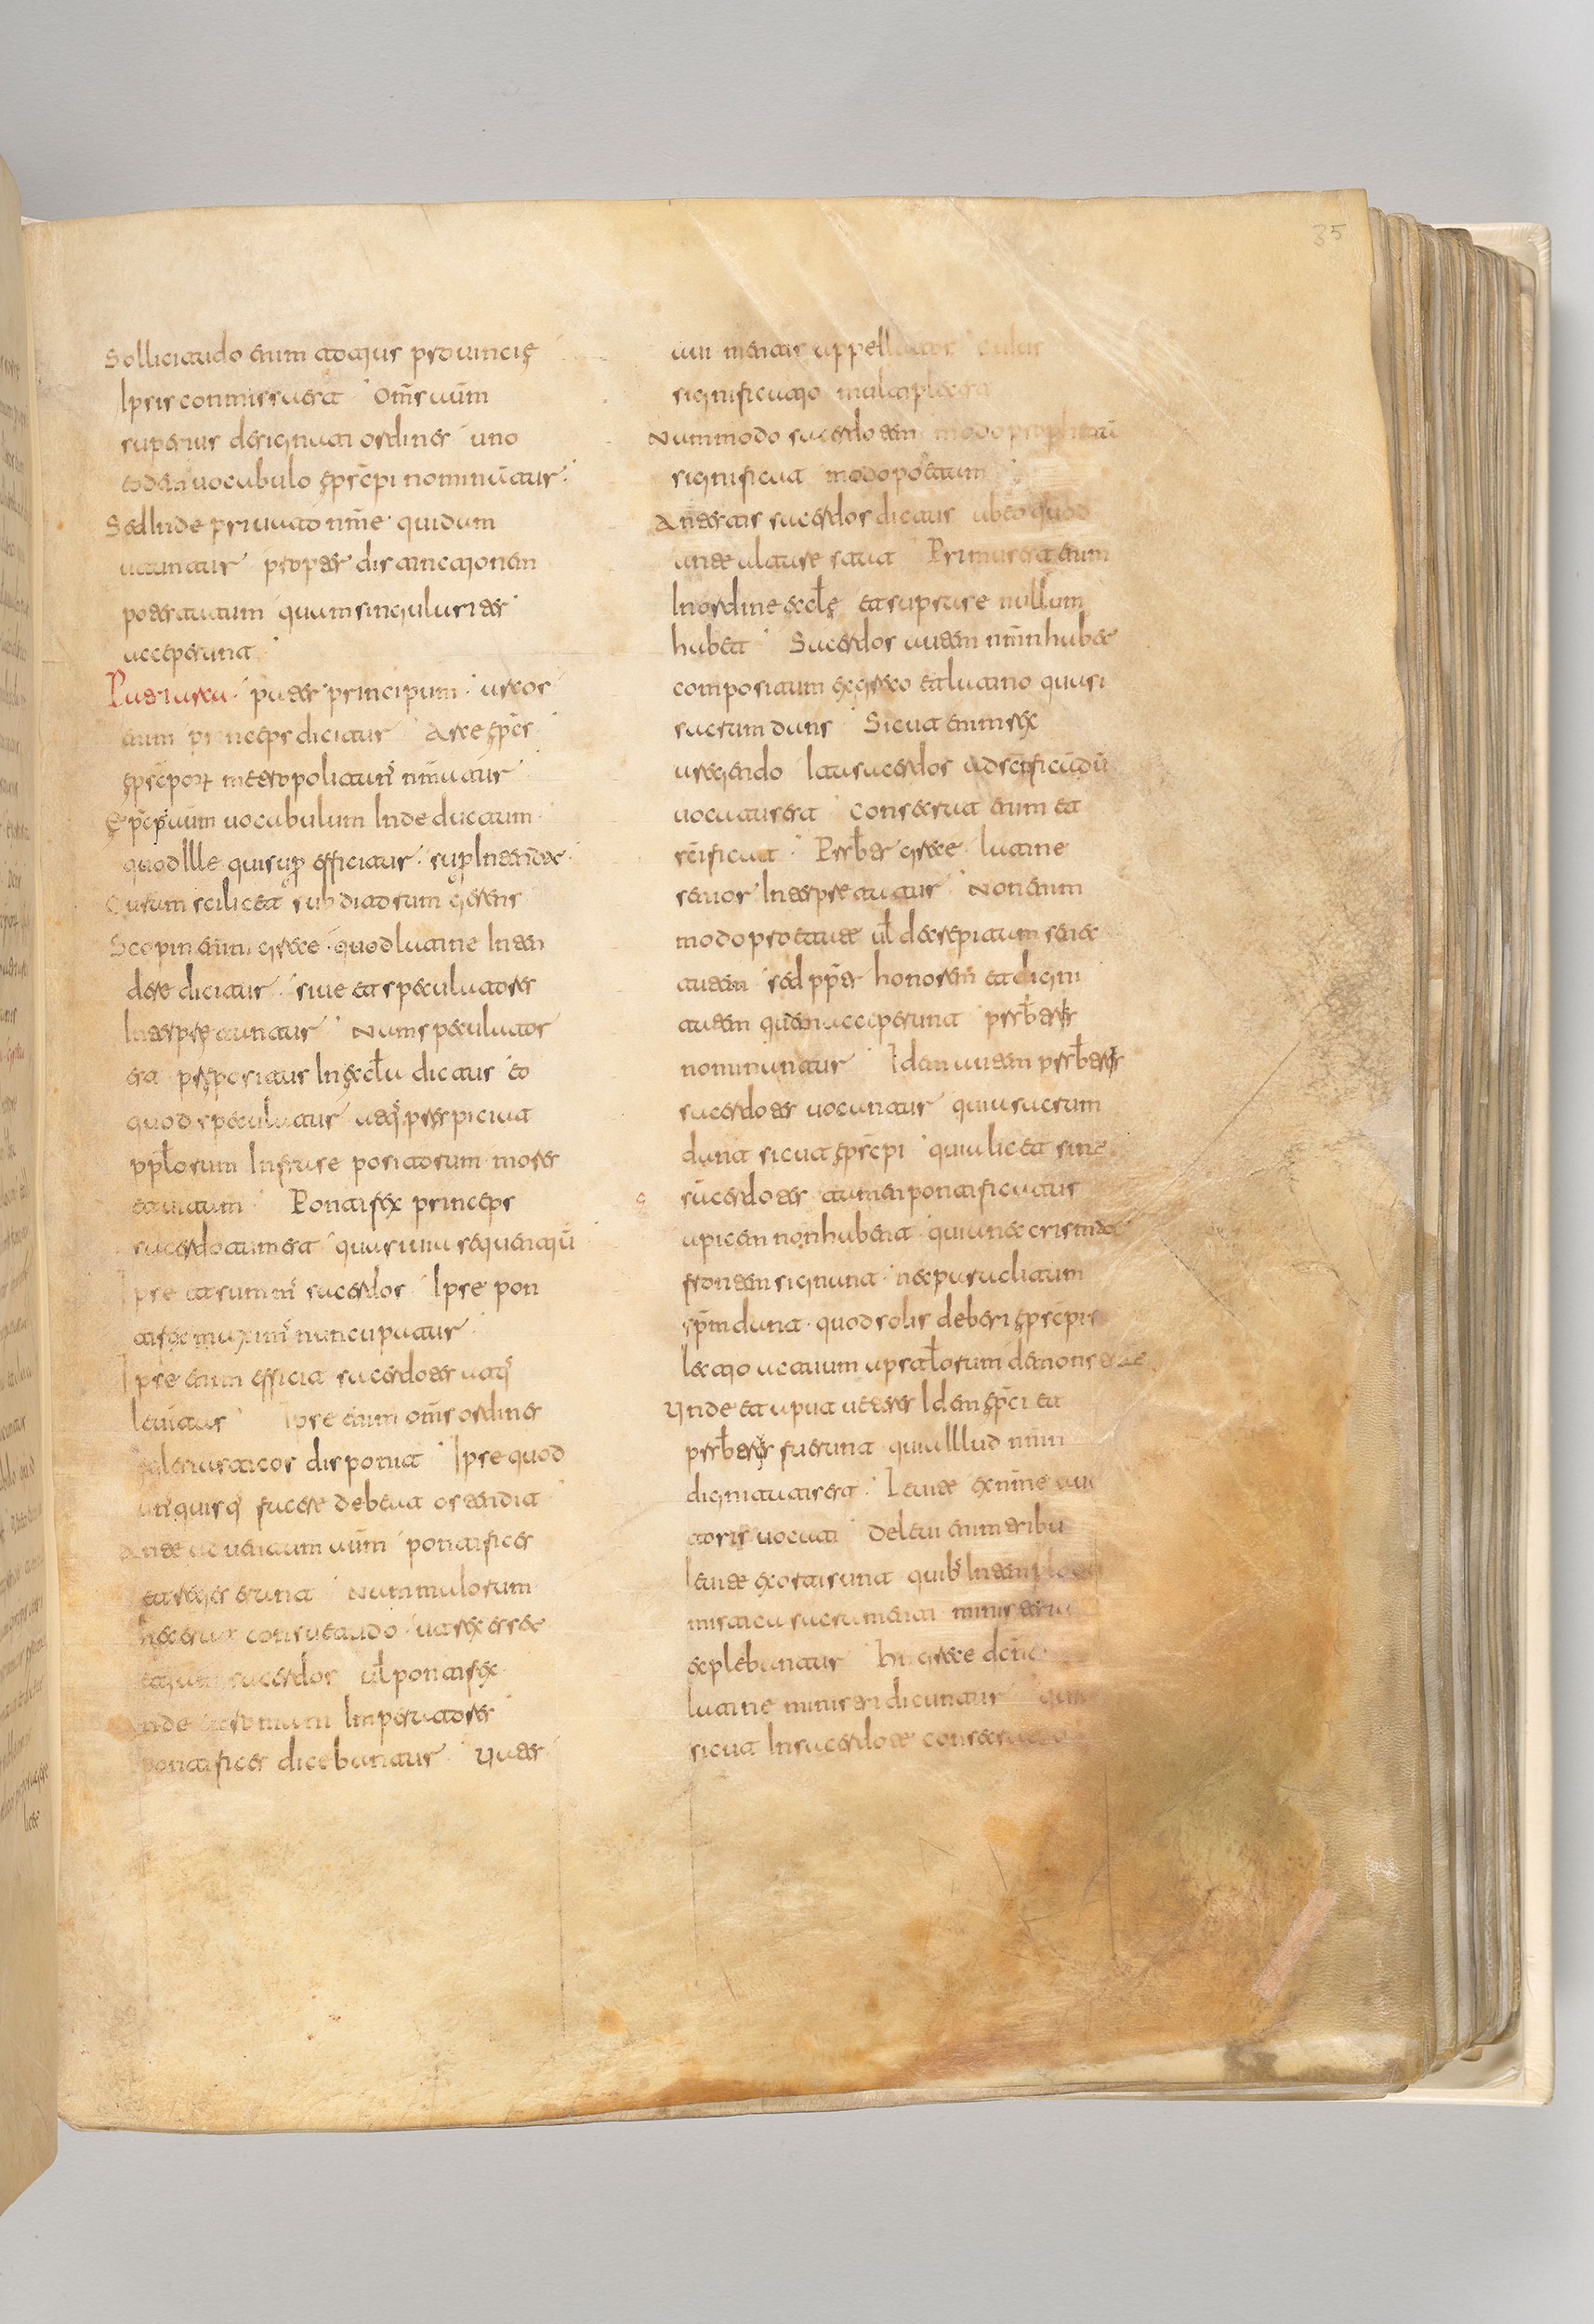 35
Sollicitudo enim totius prouincię
Ipsis conmissa est Om̄s aūm
superius designati ordines uno
eodem uocabulo ępsc̄pi nominantur
Sed Inde priuato nm̄e quidam
utuntur propter distinctionem
potestatum quam singulariter
acceperunt
Patriarca pater principum arcos
enim princeps dicitur Arce
metropolitan nm̄atur
autm uocabulum Inde ductum
quod Ille qui efficitur Intendat
Curam scilicet subditorum gerens
Scopin enim grece quod latine Inten
dere dicitur siue et speculatores
Interpretantur Nam speculator
est prępositus In ęcl̄a dictus eo
quod speculatur atq pręspiciat
ppl̄orum Infra se positorum mores
et uitam Pontifex princeps
sacerdotum est quasi uia sequentium
Ipse et summus sacerdos Ipse pon
tifex maximus nuncupatur
Ipse enim efficit sacerdotes atq
leuitas Ipse enim om̄s ordines
disponit Ipse quod
unusquisq facere debeat ostendit
Ante autm pontifices
et reges erant Nam maiorum
hec erat consuetudo ut rex esset
sacerdos ul̄ pontifex
Unde Imperatores
pontifices dicebantur Uates
a ui mentis appellatos cuius
significatio multiplex est
Nam modo sacerdotem modo prophetam
significat modo poetam
Antestis sacerdos dictus ab eo quod
ante stat Primus est enim
In ordine ęcl̄ę et supra se nullum
habet Sacerdos autem nm̄n habet
compositum ex greco et latino quasi
sacrum dans Sicut enim rex
a regendo Ita sacerdos a sc̄ificando
uocatus est Consecrat enim et
sc̄ificat Presb̄ter grece latine
senior Interpretatur Non enim
modo pro etate ul̄ decrepitam senec
tutem sed ppter honorem et digni
tatem quam acceperunt presb̄teres
nominantur Idem autem presb̄teres
sacerdotes uocantur quia sacrum
dant sicut ępsc̄pi quia licet sine
sacerdotes tamen pontificatus
apicem non habent quia nec crisma
frontem signant nec paraclitum
sp̄m dant quod solis deberi ępsc̄pis
lectio actuum apstl̄orum demonstrat
Unde et aput ueteres Idem ępc̄i et
presb̄teres fuerunt quia Illud nm̄n
dignitatis est Leuite ex nm̄ne auc
toris uocati De leui enim tribu
leuite exorti sunt quib In templo
mistica sacramenti ministeria
explebantur Hi grece
latine ministri dicuntur quia
sicut In sacerdote consecratio